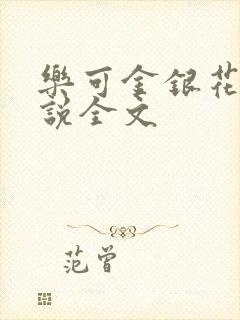 樂可金银花
說全文
范曾